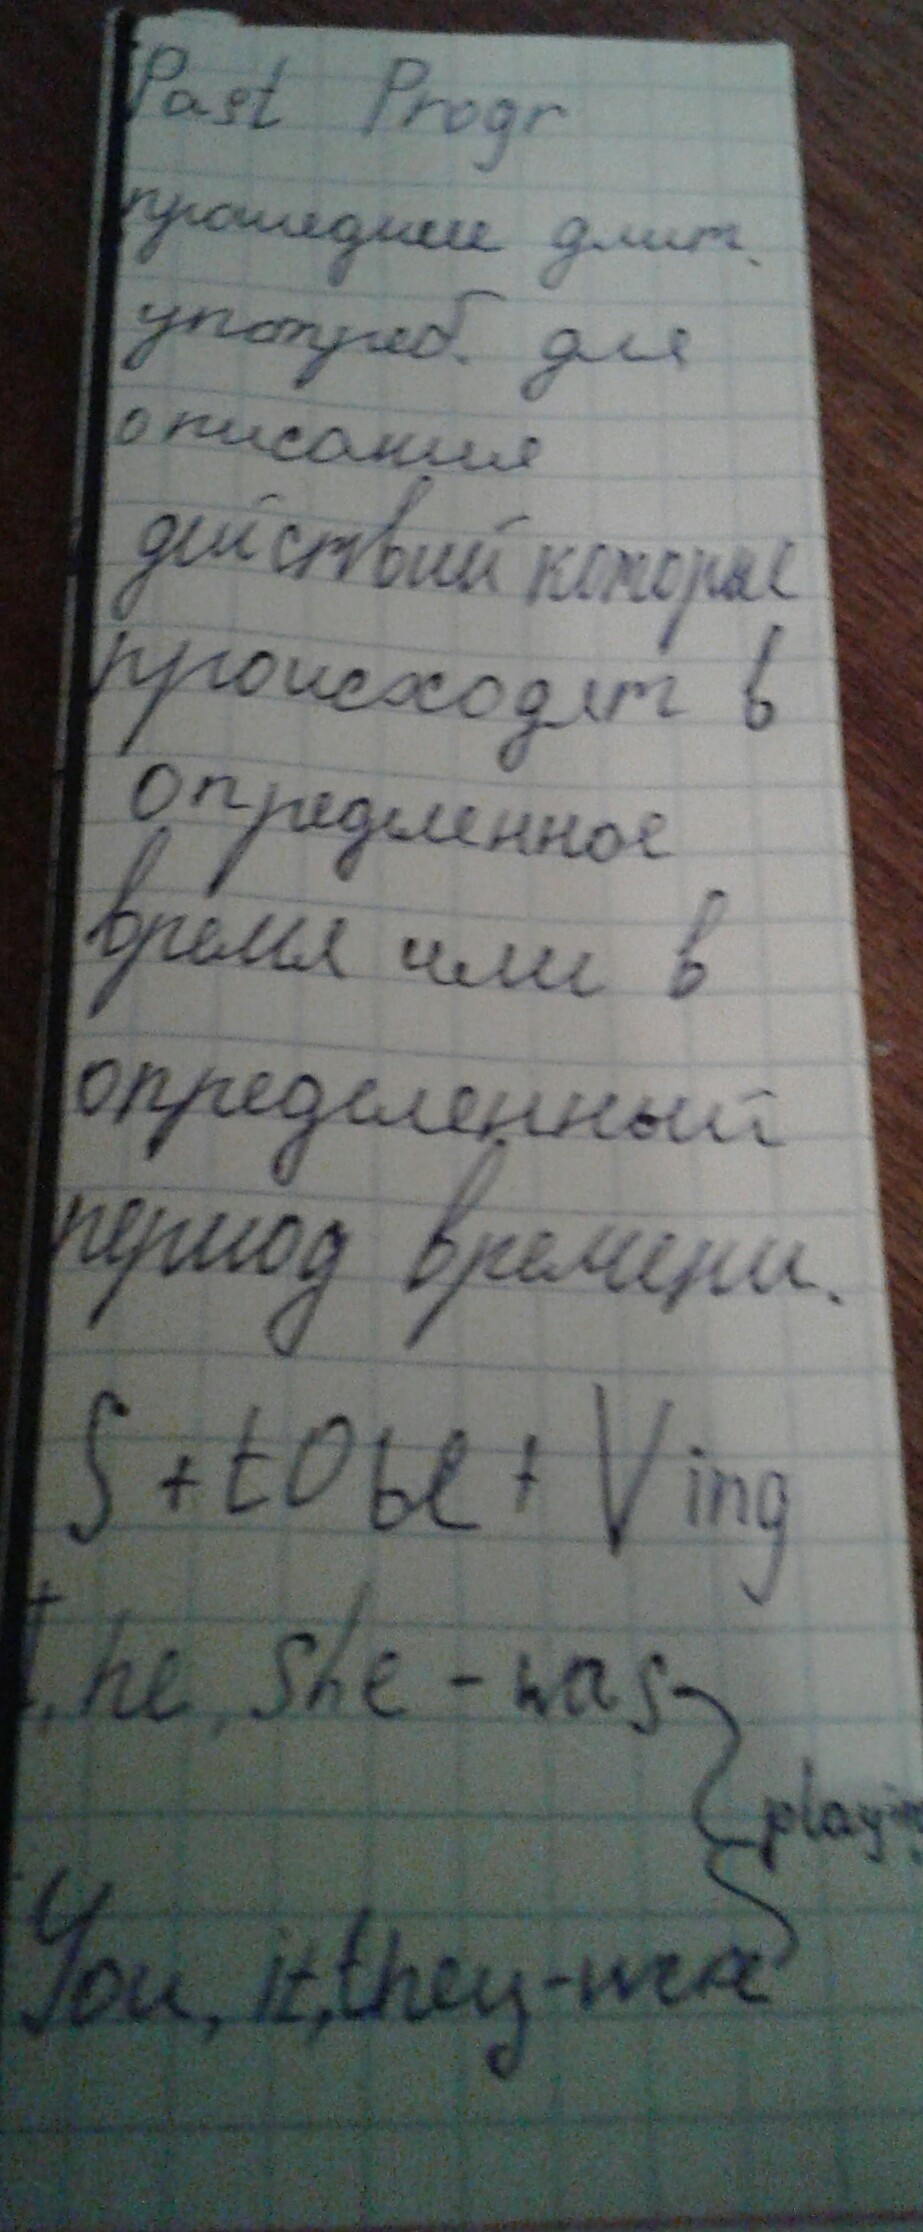 Past Progr
прошедшее длит.
употреб. для
описания
действий которые
происходят в
определенное
время или в
определенный
период времени.
S + tObe + Ving
I, he, she - was
playing
You, it, they - were